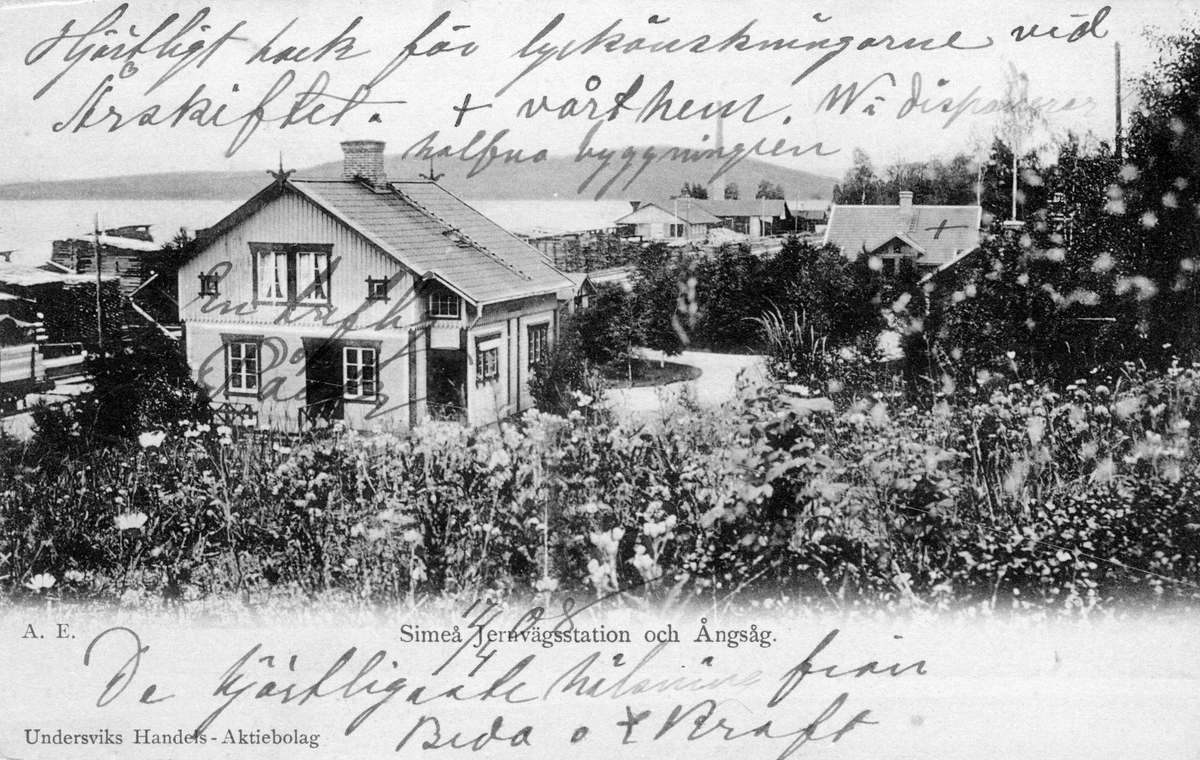 Hjärtligt tack för lyckönskningarne vid
Årskiftet. + vårt hem. Wi disponerar
halfva byggningen
En
17/4 08
A. E.
Simeå Jernvägsstation och Ångsåg.
De hjärtligaste hälsning från
Beda o Kraft
Undersviks Handels-Aktiebolag